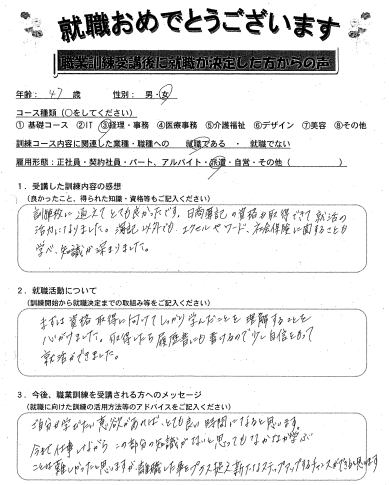 就職おめでとうございます
職業訓練受講後に就職が決定した方からの声
年齢： 47 歳　性別： 男・女
コース種類（○をしてください）
① 基礎コース ②IT ③経理・事務 ④医療事務 ⑤介護福祉 ⑥デザイン ⑦美容 ⑧その他
訓練コース内容に関連した業種・職種への　就職である ・ 就職でない
雇用形態：正社員・契約社員・パート、アルバイト・派遣・自営・その他（　　　）
１．受講した訓練内容の感想
（良かったこと、得られた知識・資格等もご記入ください）
訓練校に通えてとても良かったです。日商簿記の資格も取得できて就活の
活力になりました。簿記以外でも、エクセルやワード、社会保険に関することも
学べ、知識が深まりました。
２．就職活動について
（訓練開始から就職決定までの取組み等をご記入ください）
まずは資格取得に向けてしっかり学んだことを理解することを
心がけました。取得したら履歴書にも書けるので少し自信をもって
就活ができました。
３．今後、職業訓練を受講される方へのメッセージ
（就職に向けた訓練の活用方法等のアドバイスをご記入ください）
自分が学びたい意欲があれば、とても良い時間になると思います。
今まで仕事しながらこの部分の知識がないと思ってもなかなか学ぶ
ことは難しかったと思いますが、離職した事をプラスに捉え新たなステップアップするチャンスができると思います